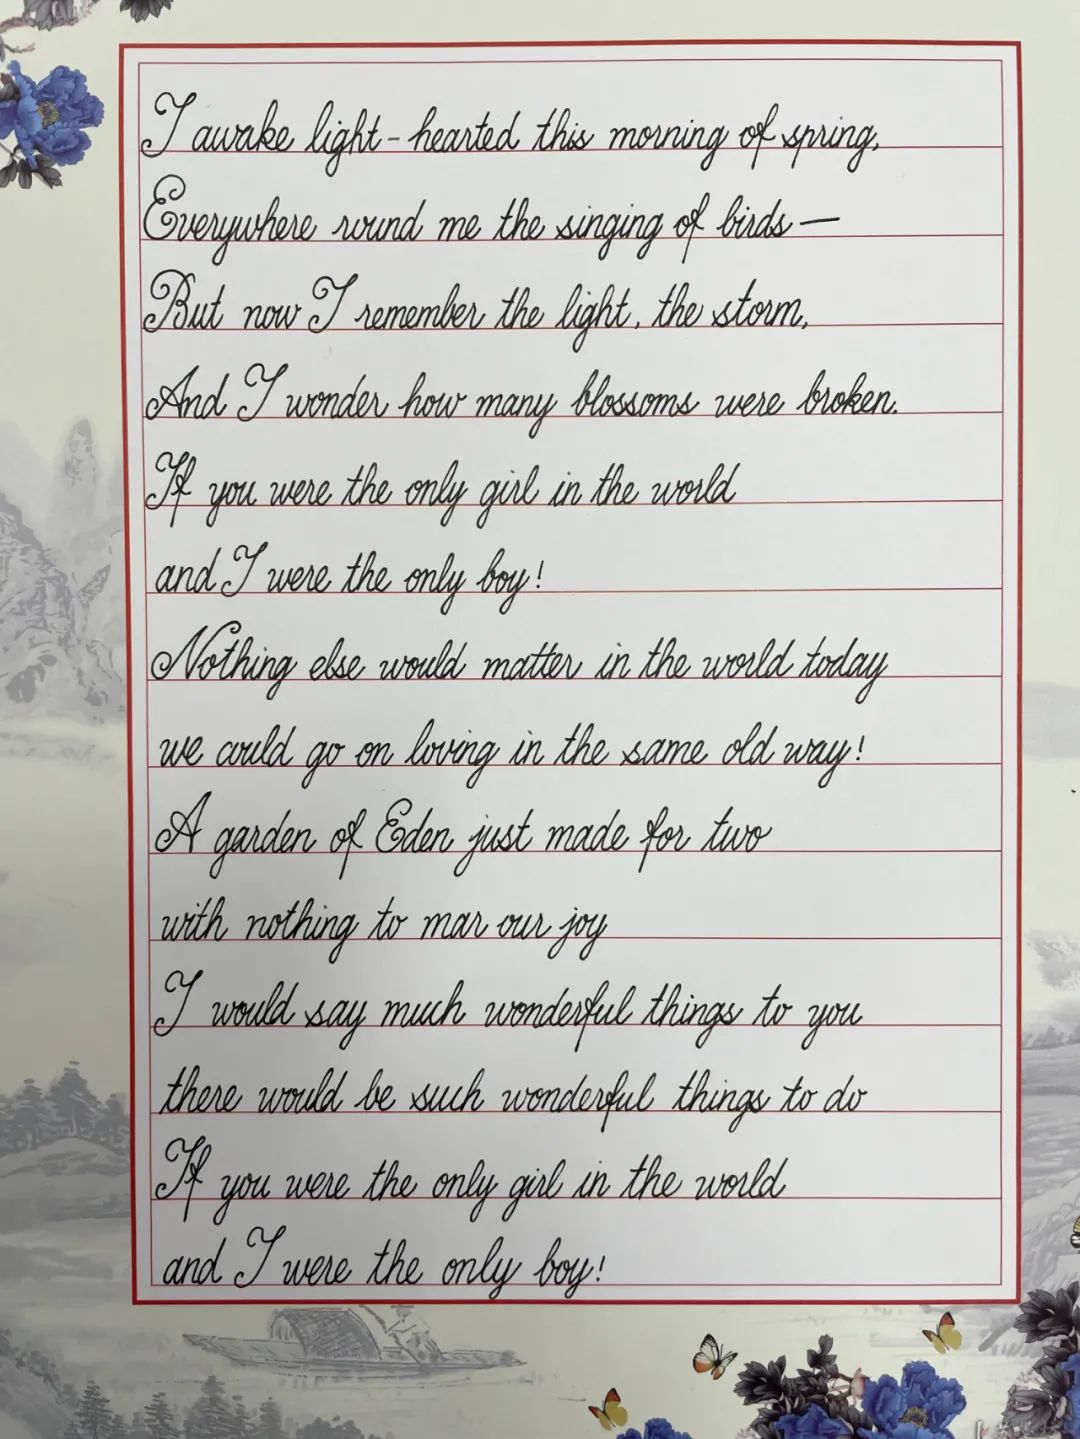 I awake light-hearted this morning of spring,
Everywhere round me the singing of birds—
But now I remember the light, the storm,
And I wonder how many blossoms were broken.
If you were the only girl in the world
and I were the only boy!
Nothing else would matter in the world today
we could go on loving in the same old way!
A garden of Eden just made for two
with nothing to mar our joy
I would say much wonderful things to you
there would be such wonderful things to do
If you were the only girl in the world
and I were the only boy!